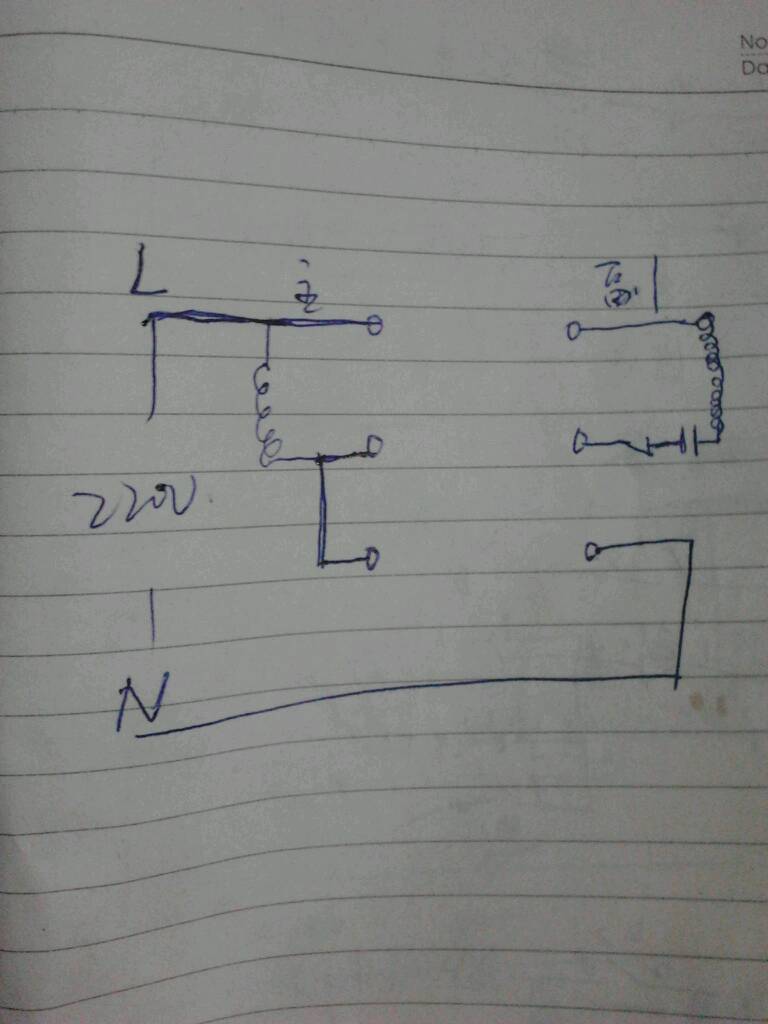 No
Da
L
220V
N